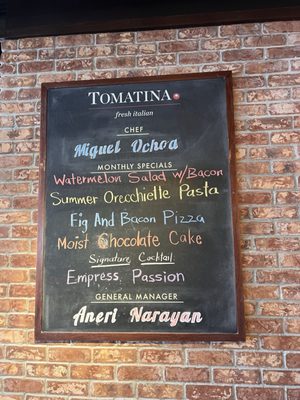 TOMATINA
fresh italian
CHEF
Miguel Ochoa
MONTHLY SPECIALS
Watermelon Salad w/Bacon
Summer Orecchielle Pasta
Fig And Bacon Pizza
Moist Chocolate Cake
Signature Cocktail
Empress Passion
GENERAL MANAGER
Aneri Narayan